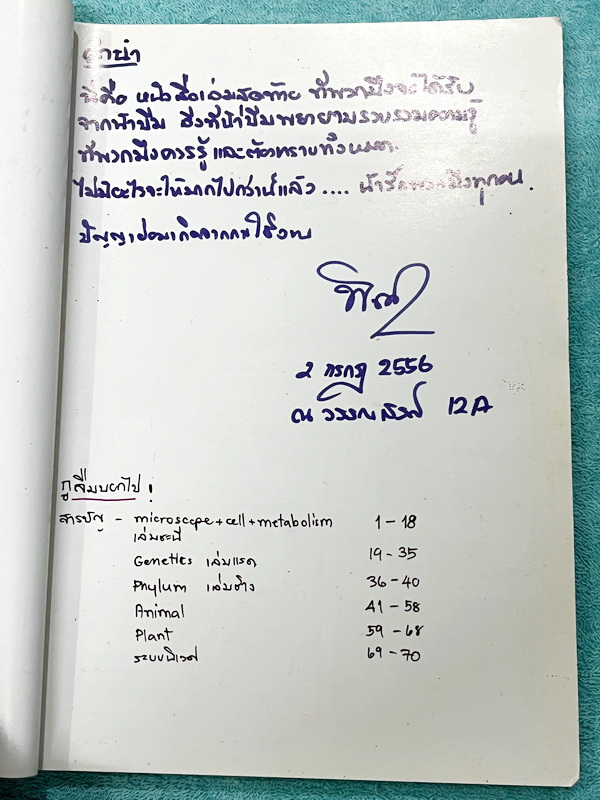 คำนำ
นี่คือ หนังสือเล่มสุดท้าย ที่พวกมึงจะได้รับ
จากน้าปืม สิ่งที่น้าปืมพยายามรวบรวมความรู้
ที่พวกมึงควรรู้ และต้องทราบทั้งหมด
ไม่มีอะไรจะให้มากไปกว่านี้แล้ว .... น้ารักพวกมึงทุกคน.
ปัญญาย่อมเกิดจากการใช้งาน
2 กรกฎ 2556
ณ วรรณสรณ์ 12A
กูลืมบอกไป !
สารบัญ - microscope + cell + metabolism 1 - 18
เล่มชะนี
Genetics เล่มแรด 19 - 35
Phylum เล่มช้าง 36 - 40
Animal 41 - 58
Plant 59 - 68
ระบบนิเวศ 69 - 70